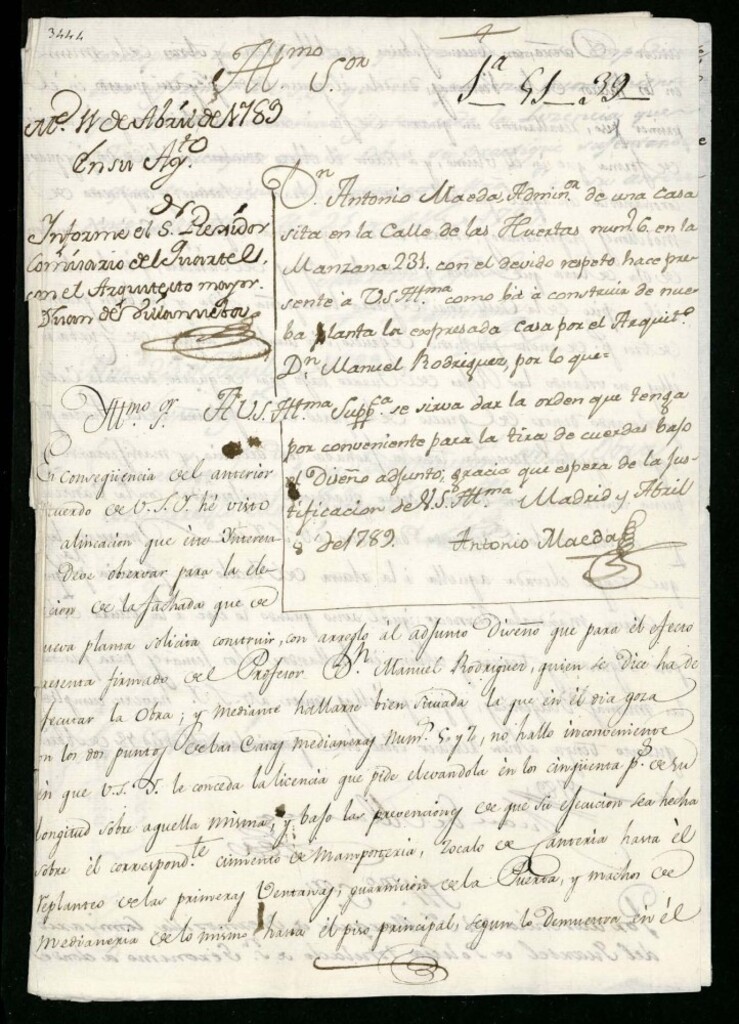 3444
Yll.mo S.or
1a 51 . 39
Md. 11 de Abril de 1789
En su Ag.to
Informe el S. Rexidor
Comisario del Quartel,
con el Arquitecto mayor.
Dn. Antonio Maeda, Admin.or de una casa
sita en la Calle de las Huertas num.o 6. en la
Manzana 231. con el devido respeto hace pre-
sente à V.S.Yll.ma como bà à construir de nue-
ba planta la expresada casa por el Arquit.o
Dn. Manuel Rodriguez, por lo que-
A V.S.Yll.ma Supp.ca se sirva dar la orden que tenga
por conveniente para la tira de cuerdas bajo
el Diseño adjunto; gracia que espera de la Jus-
tificacion de V.S.Yll.ma Madrid y Abril
8 de 1789. Antonio Maeda
Yll.mo S.or
En Conseqüencia del anterior
acuerdo de V.S.Y. hé visto
alineacion que
deve observar para la ele-
cion de la fachada que de
nueva planta solicita construir, con arreglo àl adjunto Diseño que para èl efecto
presenta firmado del Profesor Dn. Manuel Rodriguez, quien se dice ha de
executar la Obra; y mediante hallarse bien situada la que en èl dia goza
en los dos puntos de las Casas medianeras Num.s 5. y 7, no hallo inconveniente
en que V.S.Y. le conceda la licencia que pide elevandola en los cinqüenta p.s de su
longitud sobre aquella misma, y bajo las prevenciones de que su èjecucion sea hecha
sobre èl correspond.te cimiento de Mamposteria, Zocalo de Canteria hasta èl
replanteo de las primeras Ventanas, guarnicion de la Puerta, y machos de
Medianeria de lo mismo hasta èl piso principal, segun lo demuestra èn èl